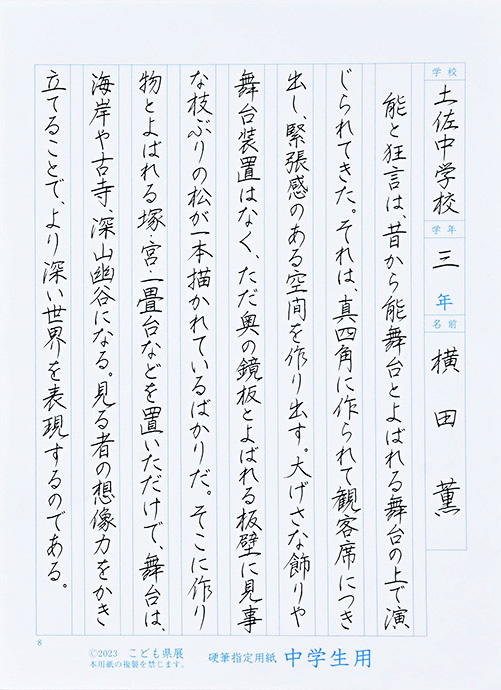 学校
土佐中学校
学年
三年
名前
横田薫
能と狂言は、昔から能舞台とよばれる舞台の上で演
じられてきた。それは、真四角に作られて観客席につき
出し、緊張感のある空間を作り出す。大げさな飾りや
舞台装置はなく、ただ奥の鏡板とよばれる板壁に見事
な枝ぶりの松が一本描かれているばかりだ。そこに作り
物とよばれる塚・宮・一畳台などを置いただけで、舞台は、
海岸や古寺、深山幽谷になる。見る者の想像力をかき
立てることで、より深い世界を表現するのである。
8
©2023 こども県展
本用紙の複製を禁じます。
硬筆指定用紙 中学生用